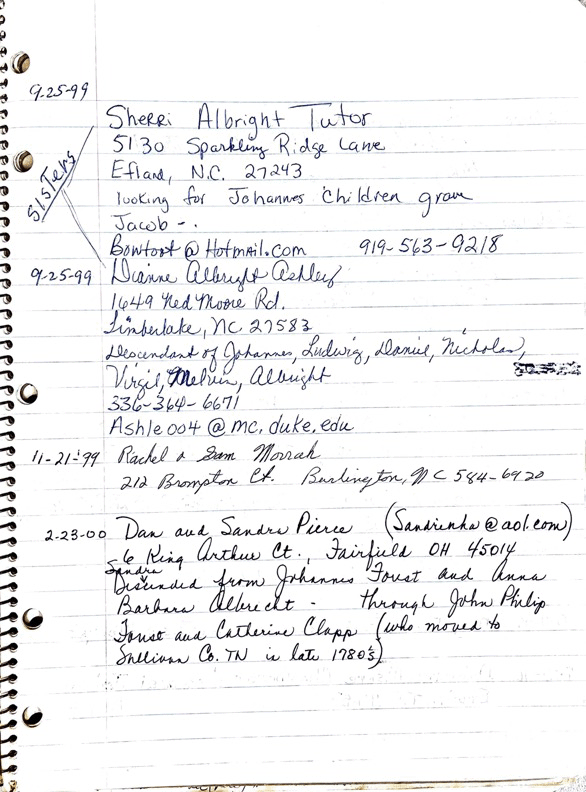 9-25-99
Sherri Albright Tutor
5130 Sparkling Ridge Lane
Efland, N.C. 27243
looking for Johannes children grave
Jacob -.
Bowtoot@Hotmail.com 919-563-9218
Sisters
9-25-99 Dianne Albright Ashley
1649 Ned Moore Rd.
Timberlake, NC 27583
Descendant of Johannes, Ludwig, Daniel, Nicholas,
Virgil, Melvin, Albright
336-364-6671
Ashle004@mc.duke.edu
11-21-99 Rachel & Sam Morrah
212 Brompton Ct. Burlington, NC 584-6920
2-23-00 Dan and Sandra Pierce (Sandrenha@aol.com)
6 King Arthur Ct., Fairfield OH 45014
Sandra
Discended from Johannes Foust and Anna
Barbara Albrecht - through John Philip
Foust and Catherine Clapp (who moved to
Sullivan Co. TN in late 1780's)